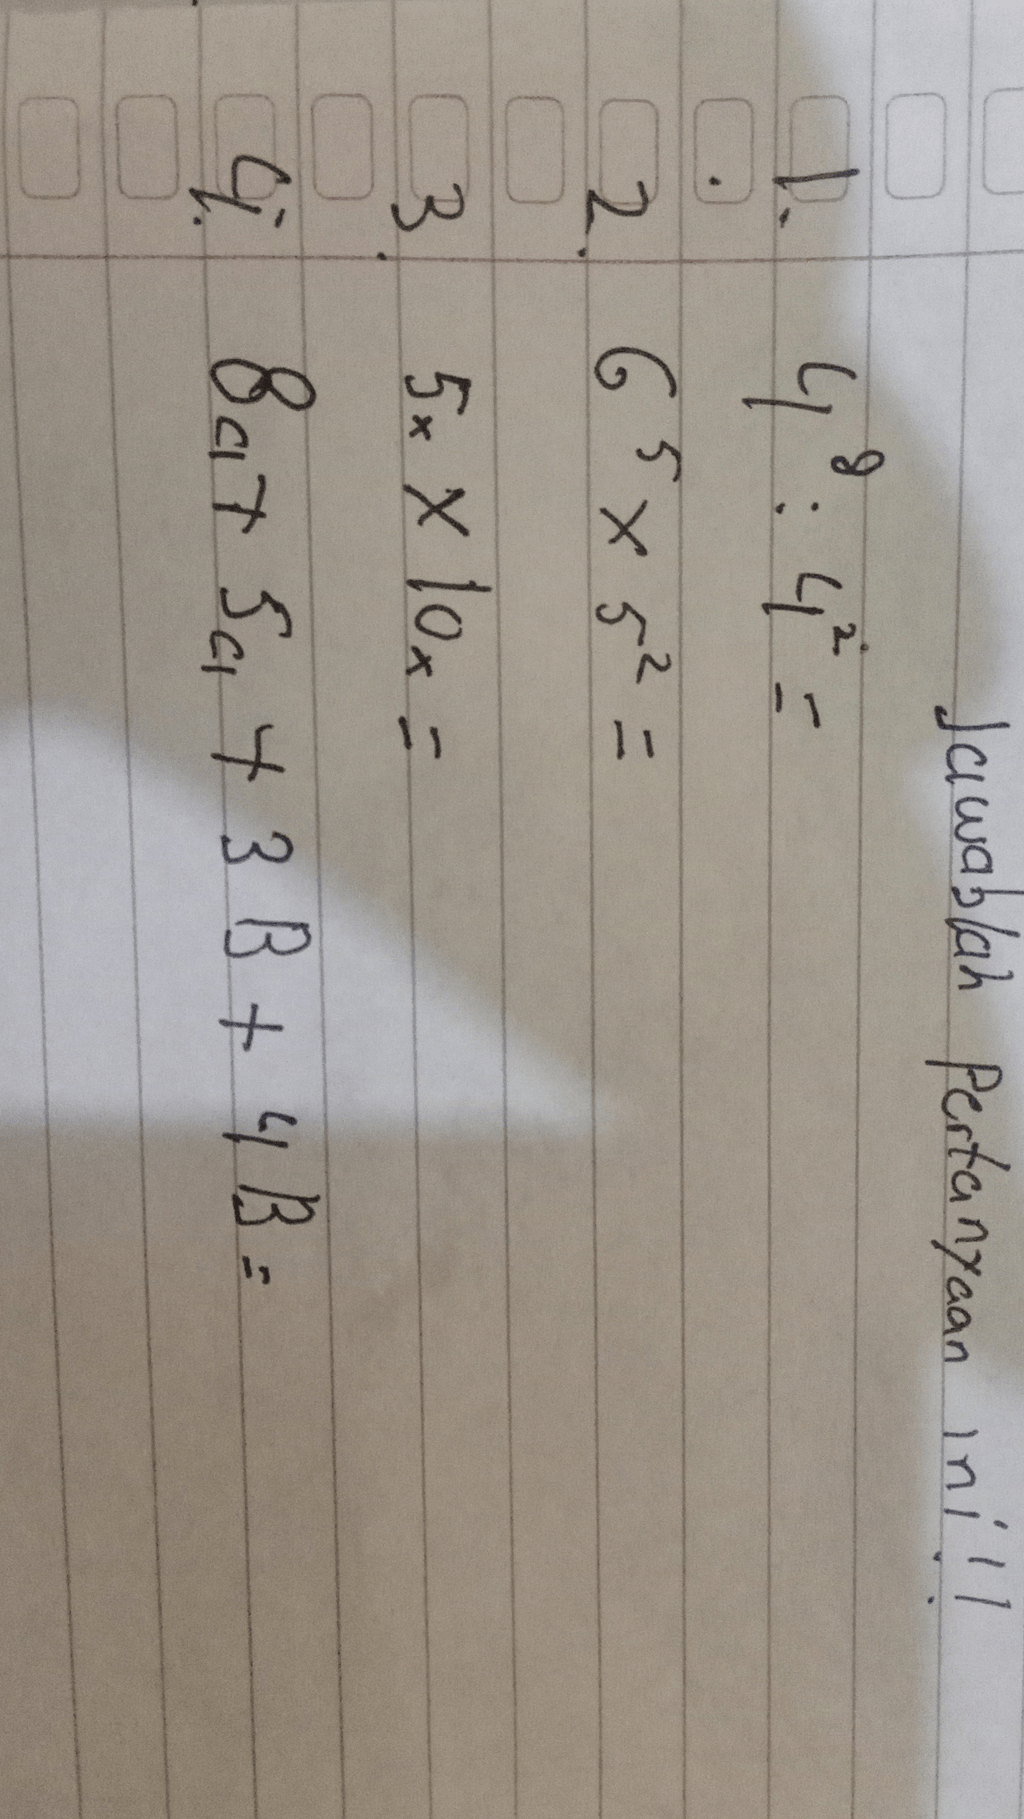 Jawablah Pertanyaan ini!!
1. 4⁸ : 4² =
2. 6⁵ x 5² =
3. 5x x 10x =
4. 8a + 5a + 3B + 4B =